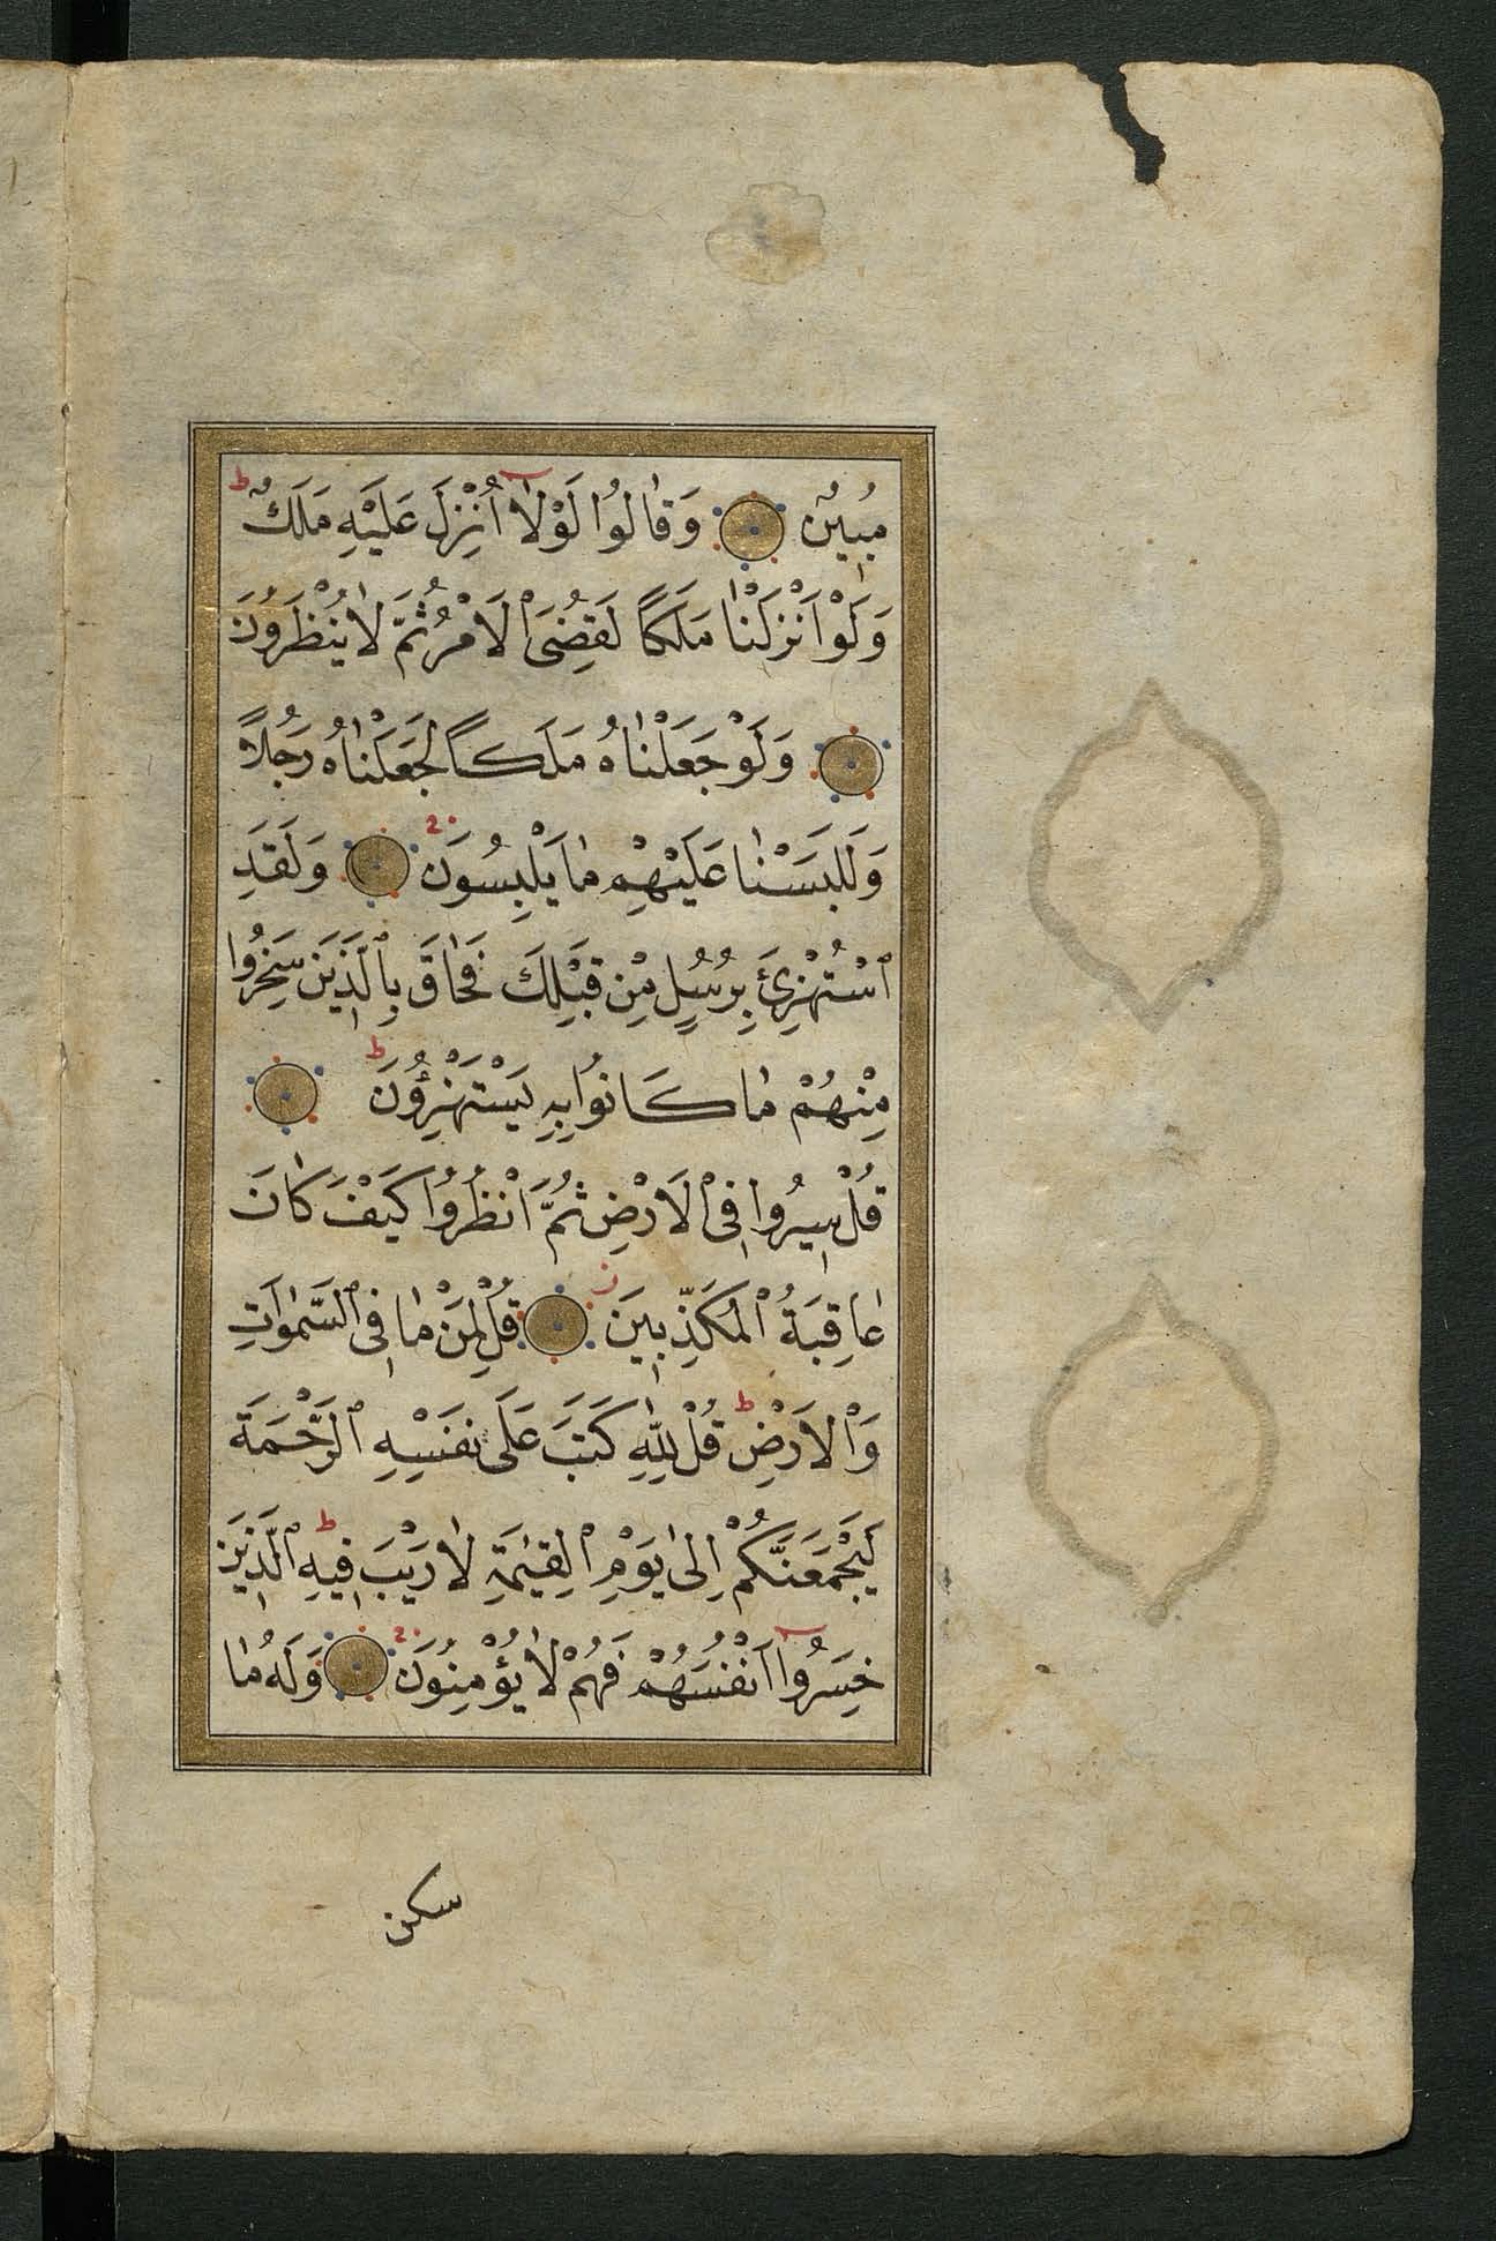 مُبِينٌ وَقَالُوا لَوْلَا أُنْزِلَ عَلَيْهِ مَلَكٌ ط
وَلَوْ أَنْزَلْنَا مَلَكًا لَقُضِيَ ٱلْأَمْرُ ثُمَّ لَا يُنْظَرُونَ
وَلَوْ جَعَلْنَاهُ مَلَكًا لَجَعَلْنَاهُ رَجُلًا
وَلَلَبَسْنَا عَلَيْهِمْ مَا يَلْبِسُونَ وَلَقَدِ
ٱسْتُهْزِئَ بِرُسُلٍ مِنْ قَبْلِكَ فَحَاقَ بِٱلَّذِينَ سَخِرُوا
مِنْهُمْ مَا كَانُوا بِهِ يَسْتَهْزِؤُنَ ط
قُلْ سِيرُوا فِي ٱلْأَرْضِ ثُمَّ ٱنْظُرُوا كَيْفَ كَانَ
عَاقِبَةُ ٱلْمُكَذِّبِينَ قُلْ لِمَنْ مَا فِي ٱلسَّمٰوَاتِ
وَٱلْأَرْضِ ط قُلْ لِلّٰهِ كَتَبَ عَلَى نَفْسِهِ ٱلرَّحْمَةَ
لَيَجْمَعَنَّكُمْ إِلَى يَوْمِ ٱلْقِيٰمَةِ لَا رَيْبَ فِيهِ ط ٱلَّذِينَ
خَسِرُوا أَنْفُسَهُمْ فَهُمْ لَا يُؤْمِنُونَ وَلَهُ مَا
سكن